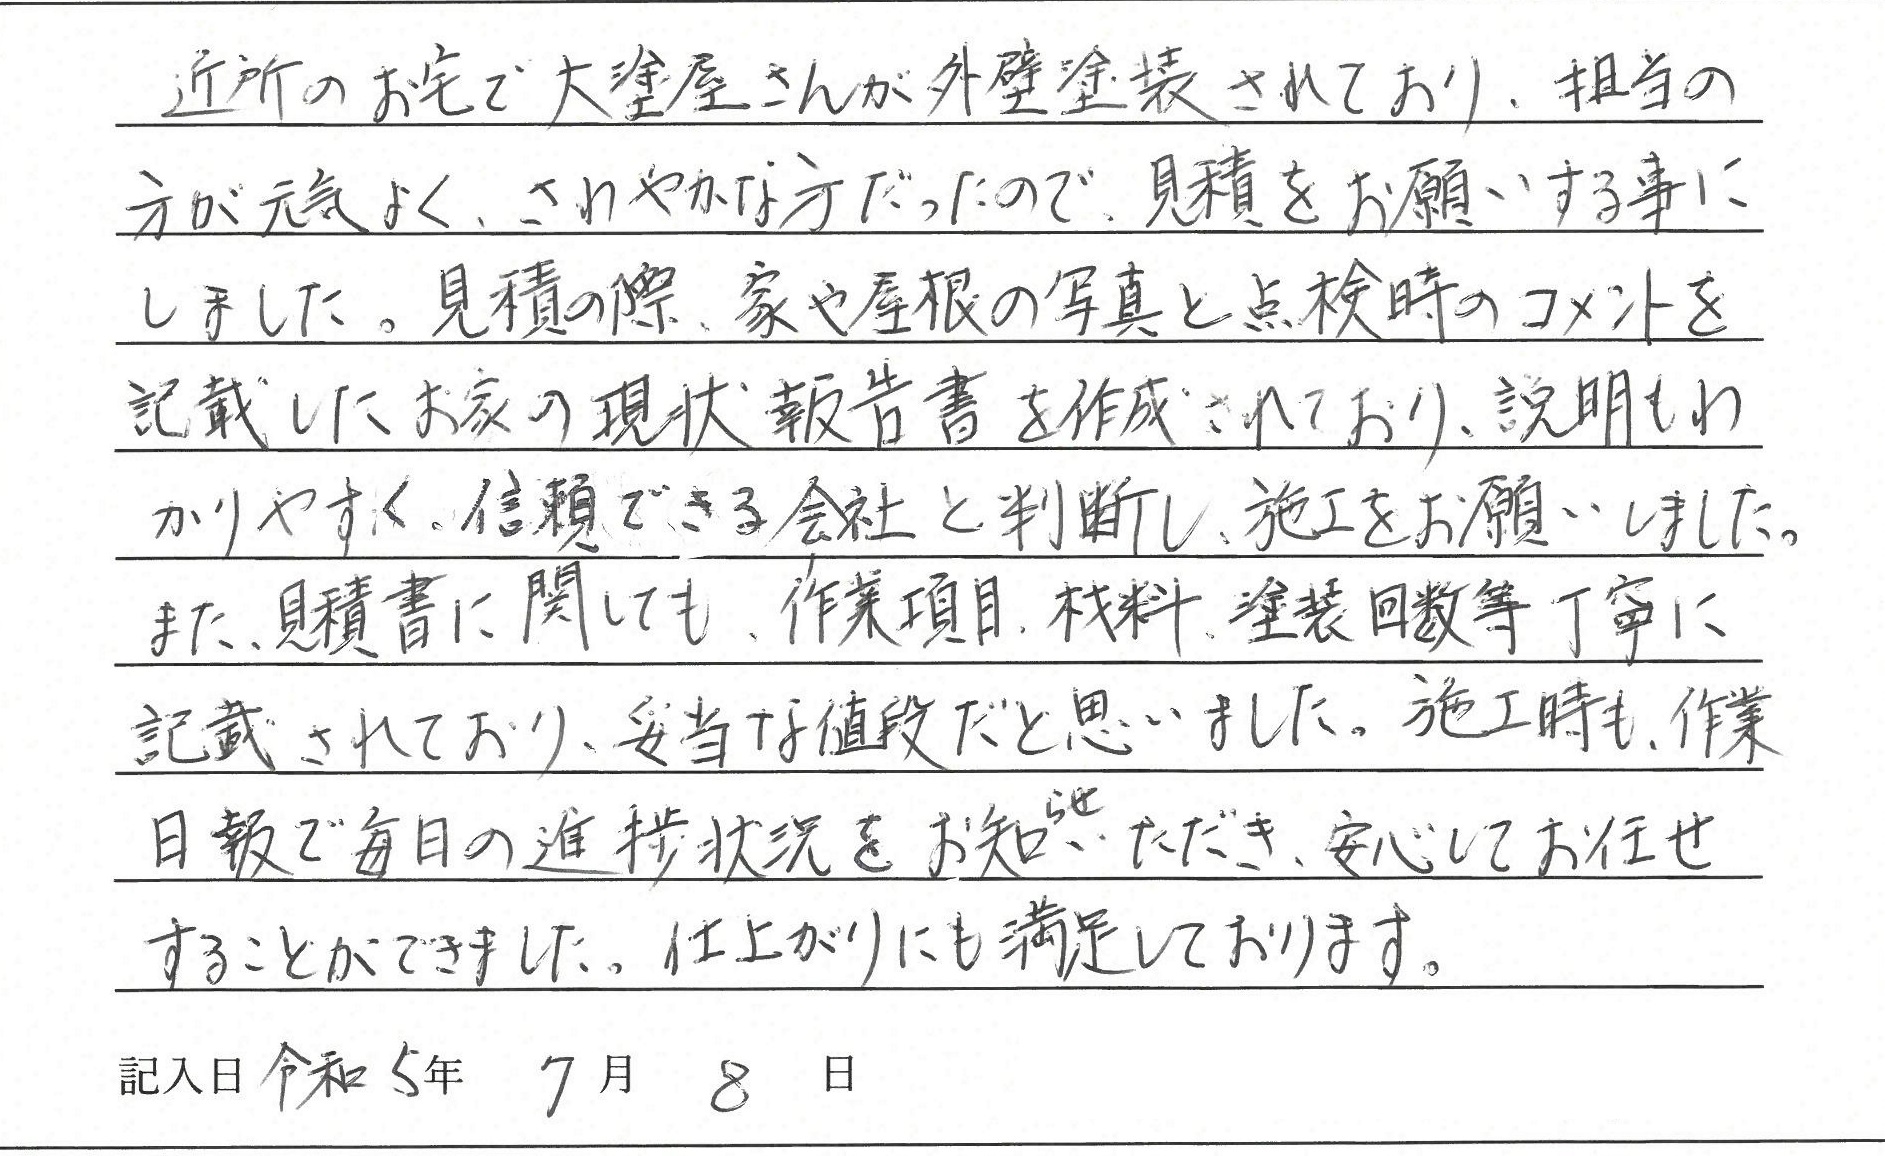 近所のお宅で大塗屋さんが外壁塗装されており、担当の
方が元気よく、さわやかな方だったので、見積をお願いする事に
しました。見積の際、家や屋根の写真と点検時のコメントを
記載したお家の現状報告書を作成されており、説明もわ
かりやすく、信頼できる会社と判断し、施工をお願いしました。
また、見積書に関しても、作業項目、材料、塗装回数等丁寧に
記載されており、妥当な値段だと思いました。施工時も、作業
日報で毎日の進捗状況をお知らせいただき、安心してお任せ
することができました。仕上がりにも満足しております。
記入日 令和5年 7月 8日